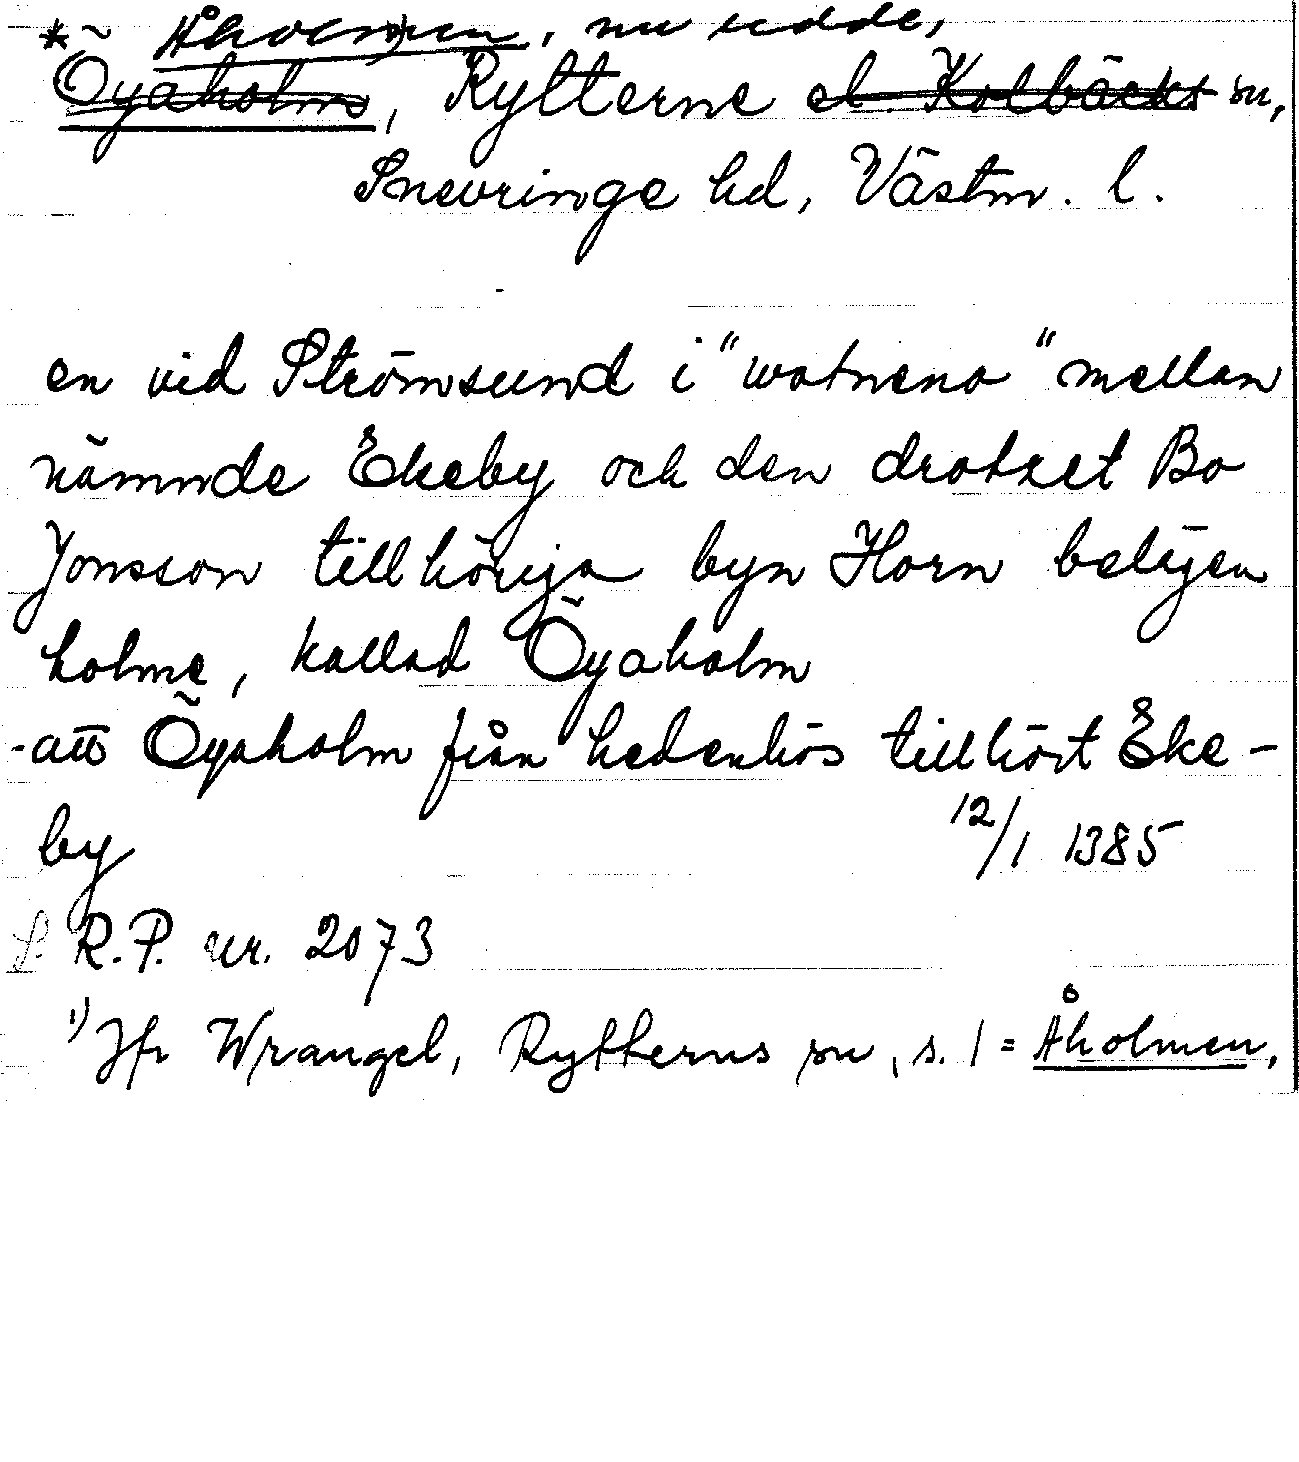 * Åholmen, nu udde,
Öyaholms, Rytterne el. Kolbäcks sn,
Snevringe hd, Västm. l.
en vid Strömsund i "watneno" mellan
nämnde Ekeby och den drotset Bo
Jonsson tillhöriga byn Horn belägen
holme, kallad Öyaholm
- att Öyaholm från hedenhös tillhört Eke-
by 12/1 1385
S. R.P. nr. 2073
1) Jfr Wrangel, Rytterns sn, s. 1 = Åholmen,